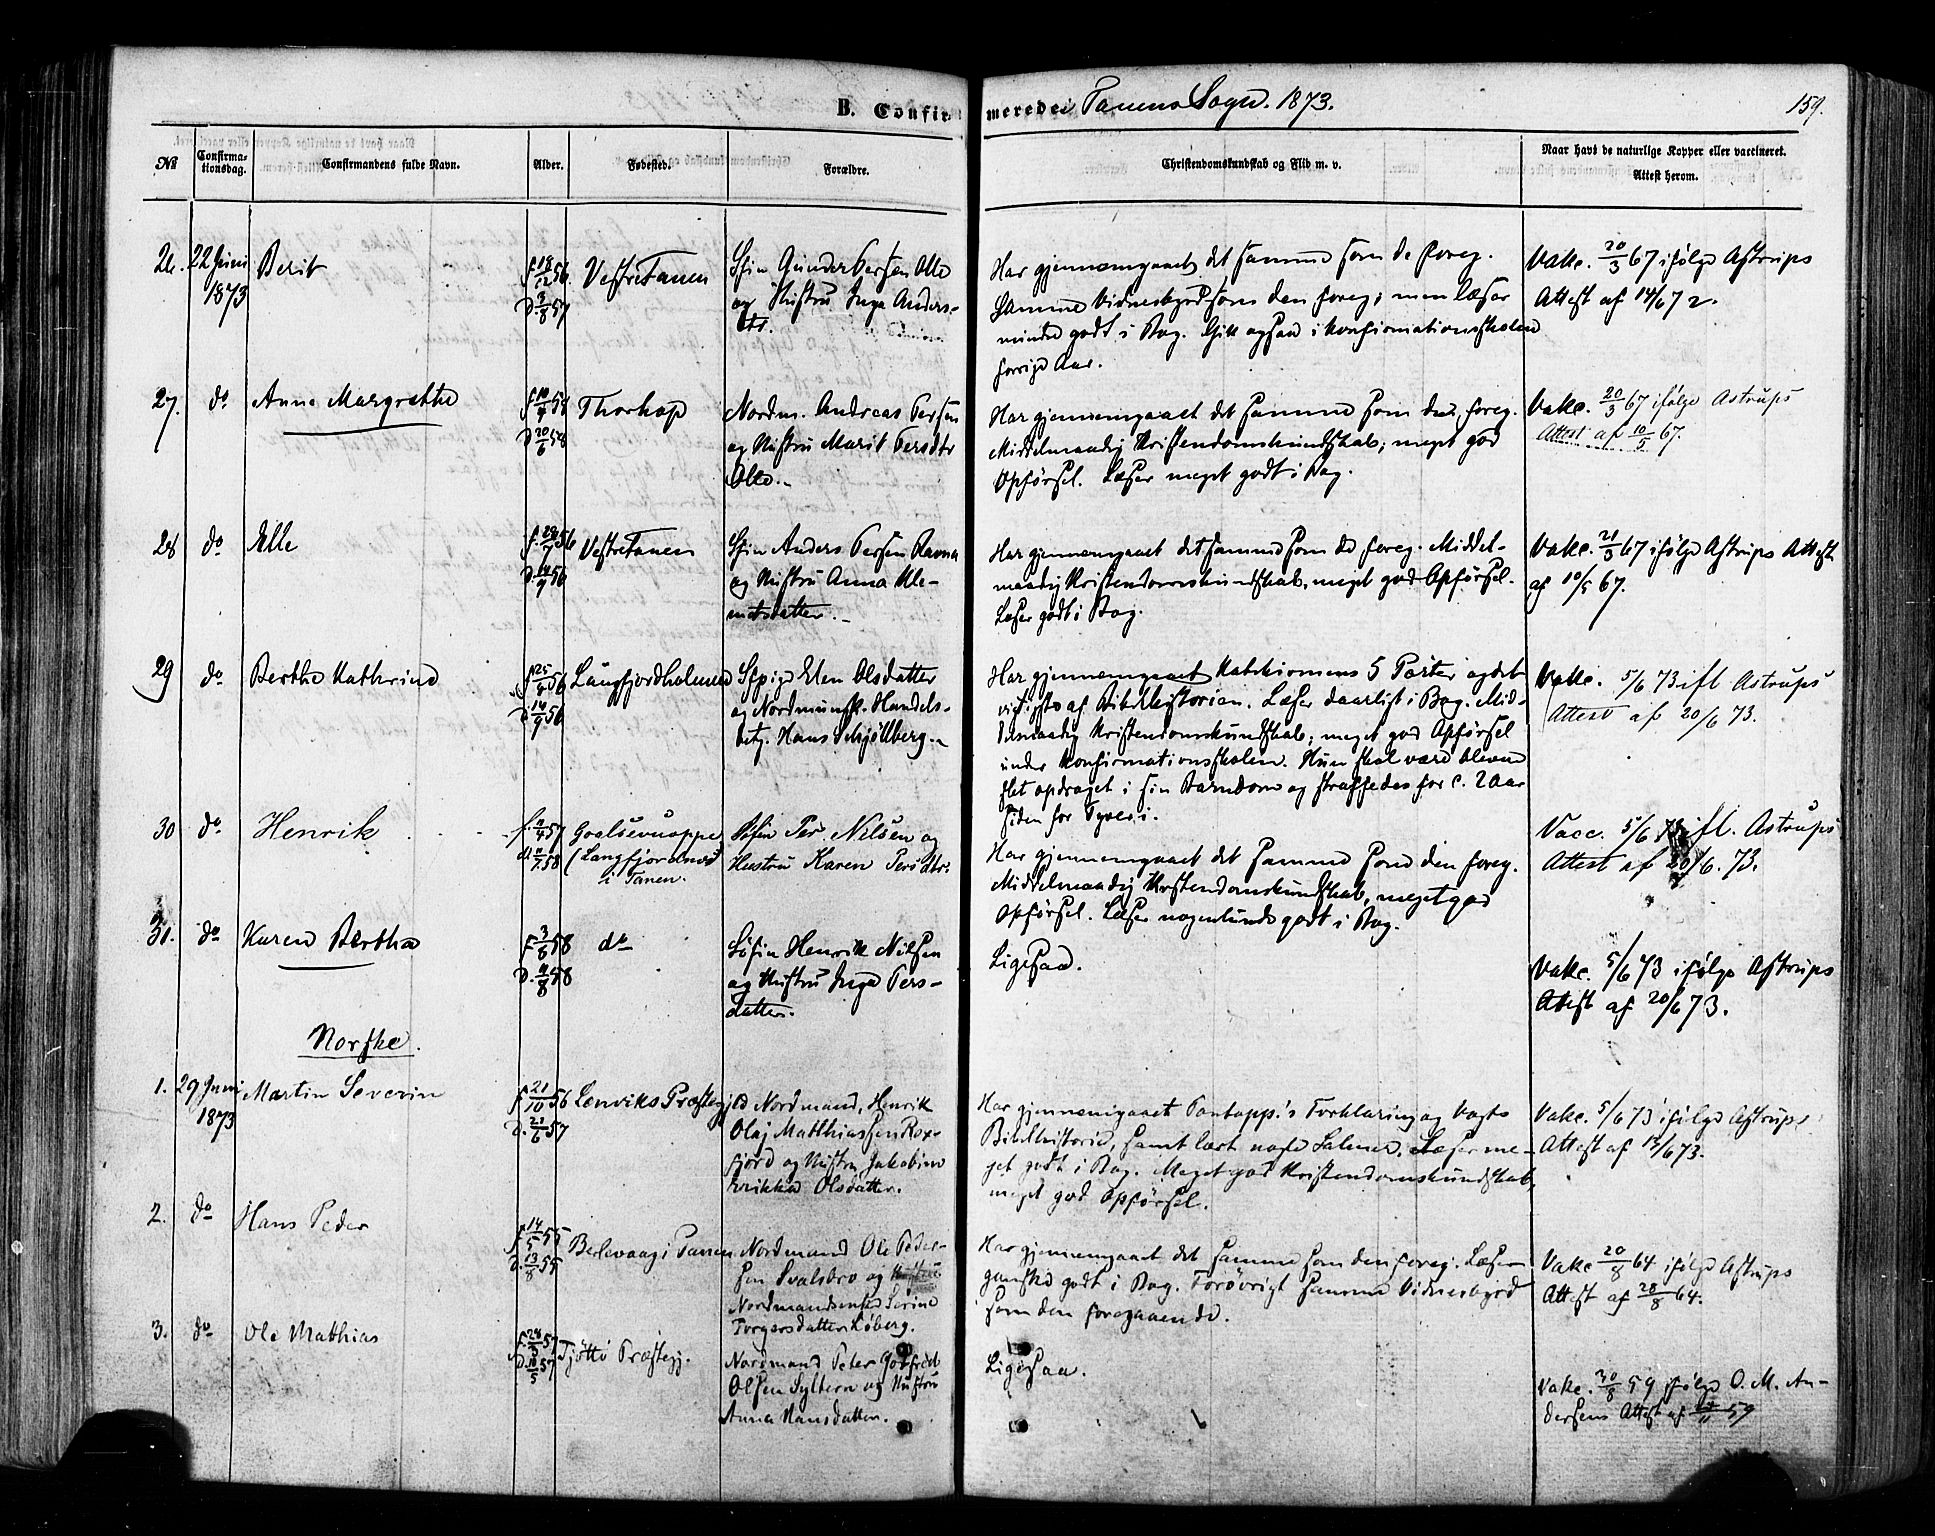 B. Confirmerede i Tanens Sogn. 1873.
159.
№
Confirma-
tionsdag.
Confirmandens fulde Navn.
Alder.
Fødested.
Forældre.
Christendomskundskab og Flid m. v.
Naar havt de naturlige Kopper eller vaccineret.
Attest herom.
26. 22 Juni
1873
Berit
f. 18/12 56
D. 3/8 57
Vestre Tanen
Sfin Gunder Persen Otte
og Hustru Inga Anders-
dtr.
Har gjennemgaaet det samme som de foreg.
Samme Vidnesbyrd som den foreg; men læser
mindre godt i Bog. Gik ogsaa i Konfirmationsskolen
forrige Aar.
Vakc. 20/3 67 ifølge Astrups
Attest af
27. do Anna Margrethe
D. 20/6 58
Thorhop
Nordm. Andreas Persen
og Hustru Marit Persdtr
Otto.
Har gjennemgaaet det samme som den foreg.
Middelmaadig Kristendomskundskab; meget god
Opførsel. Læser meget godt i Bog.
Vakc. 20/3 67 ifølge Astrups
Attest af 10/5 67.
28 do Elle
f. 28/7 56
D. 14/9 56
Vestre Tanen
Sfin Anders Persen Ravna
og Hustru Anna Kle-
metsdatter.
Har gjennemgaaet det samme som de foreg. Middel-
maadig Kristendomskundskab, meget god Opførsel.
Læser godt i Bog.
Vakc. 21/3 67 ifølge Astrups Attest
af 10/5 67.
29 do Berthe Kathrine
f. 25/4 56
D. 14/9 56
Langfjordholmen
Sfpige Elen Olsdatter
og Nordmansk. Handels-
betj. Hans Schjøllberg.
Har gjennemgaaet Katekismens 5 Parter og det
vigtigste af Bibelhistorien. Læser daarligt i Bog. Mid-
delmaadig Kristendomskundskab; meget god Opførsel
under Konfirmationsskolen. Hun skal være bleven
slet opdraget i sin Barndom og straffedes for c. 2 Aar
siden for Tyveri.
Vakc. 5/6 73 ifl Astrups
Attest af 20/6 73.
30 do Henrik
f. 11/4 57
d. 11/7 58
Goalsevuoppe
(Langfjordnes
i Tanen.
Søfin Per Nilsen og
Hustru Karen Persdtr.
Har gjennemgaaet det samme som den foreg.
Middelmaadig Kristendomskundskab, meget god
Opførsel. Læser nogenlunde godt i Bog.
Vacc. 5/6 73 ifl. Astrups
Attest af 20/6. 73.
31. do Karen Bertha
f. 3/6 58
D. 11/8 58
do
Søfin Henrik Nilsen
og Hustru Inga Pers-
datter.
Ligesaa.
Vakc. 5/6 73 ifølge Astrups
Attest af 20/6 73.
Norske.
1. 29 Juni
1873
Martin Severin
f. 21/10 56
D. 21/6 57
Lenviks Præstegjld
Nordmand, Henrik
Olaj Matthiassen Rox-
fjord og Hustru Jakobine
Frikka Olsdatter.
Har gjennemgaaet Pontopp.'s Forklaring og Vogts
Bibelhistorie, samt lært nogle Salmer. Læser me-
get godt i Bog. Meget god Kristendomskundskab,
meget god Opførsel.
Vakc. 5/6 73 ifølge Astrups
Attest af 13/6 73.
2. do Hans Peder
f. 14/5 55
D. 13/8 55
Berlevaag i Tanen
Nordmand Ole Peder-
sen Svalsbro og
Nordmandsenke Serine
Torgersdatter Løberg.
Har gjennemgaaet det samme som den foreg. Læser
ganske godt i Bog. Forøvrigt samme Vidnesbyrd
som den foregaaende.
Vakc 20/8 64 ifølge Astrups
Attest af 28/8 64.
3. do Ole Mathias
Tjøtte Præstegj.
Nordmand Peter Gotfred
Olsen Syltern og Hustru
Anna Hansdatter.
Ligesaa.
Vakc. 30/8 59 ifølge O. M. An-
dersens Attest af